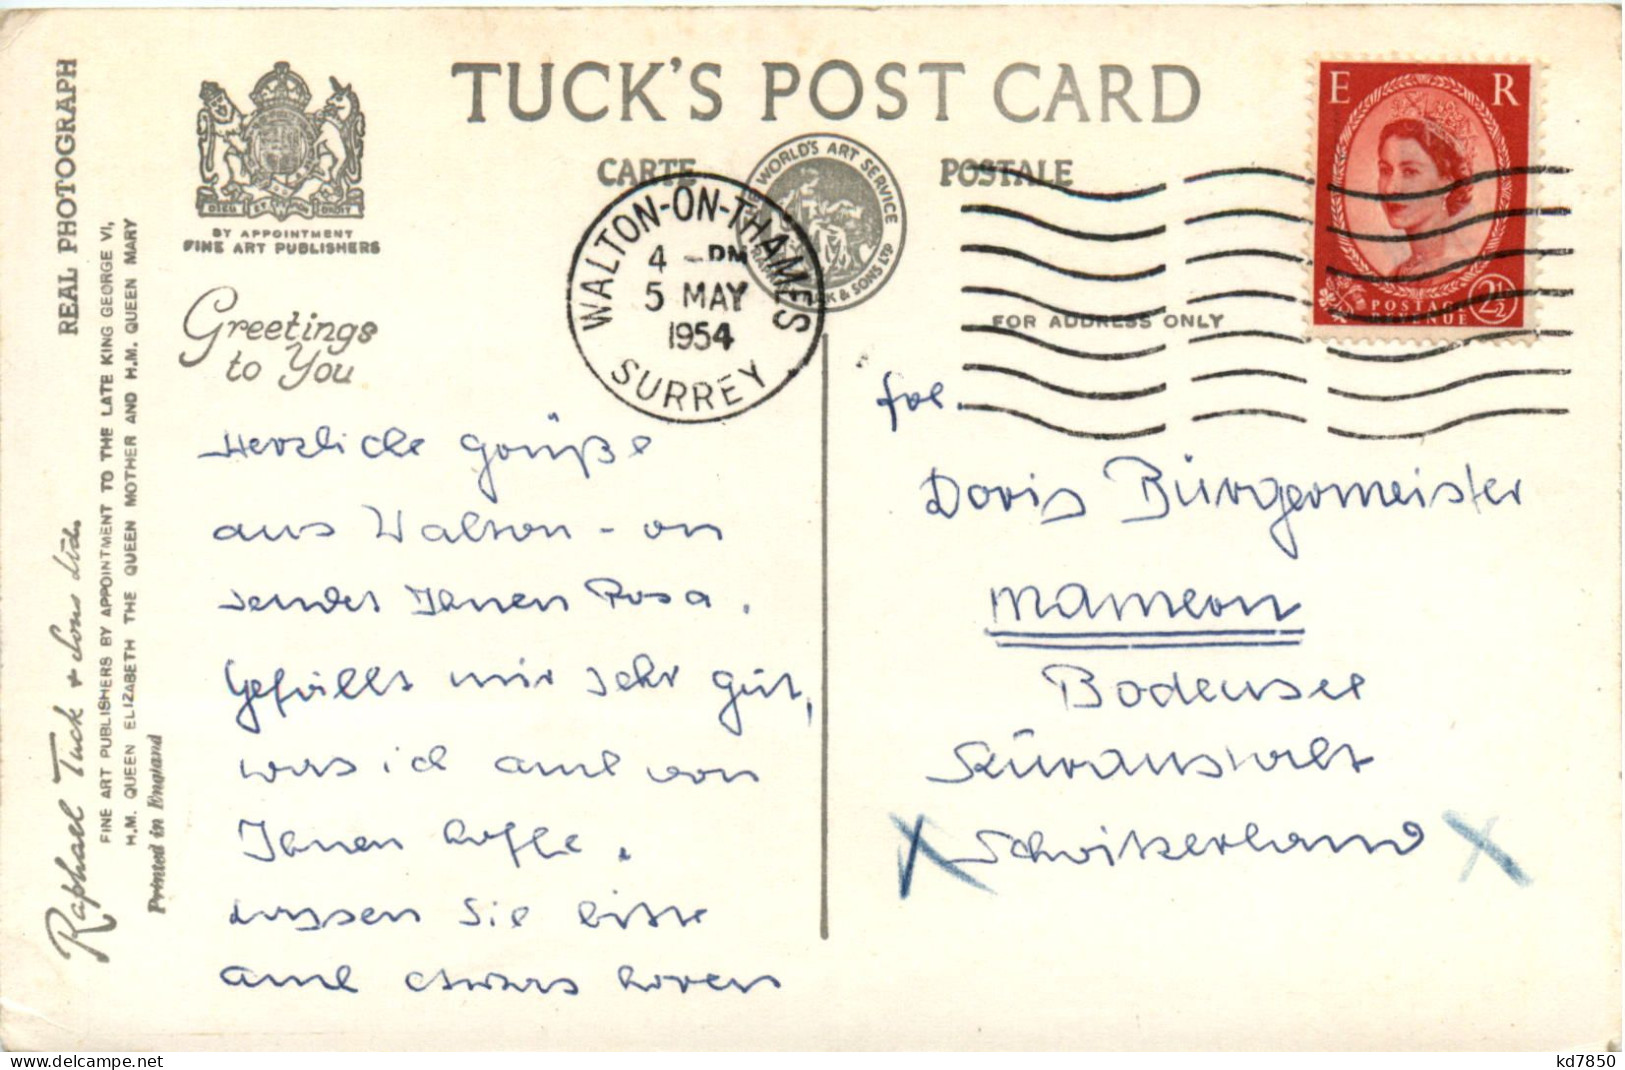 TUCK'S POST CARD
CARTE POSTALE
WORLD'S ART SERVICE
RAPHAEL TUCK & SONS LTD
REAL PHOTOGRAPH
DIEU ET MON DROIT
BY APPOINTMENT
FINE ART PUBLISHERS
Greetings
to You
WALTON-ON-THAMES
4 - PM
5 MAY
1954
SURREY
E R
POSTAGE
REVENUE
2½
FOR ADDRESS ONLY
Herzliche Grüße
aus Walton-on
sendet Ihnen Rosa.
Gefällt mir sehr gut,
was ich auch von
Ihnen hoffe.
Lassen Sie bitte
auch etwas hören
Frl.
Doris Bürgermeister
Mammern
Bodensee
Kuranstalt
X Schwitzerland X
Raphael Tuck & Sons Ltd.
FINE ART PUBLISHERS BY APPOINTMENT TO THE LATE KING GEORGE VI,
H.M. QUEEN ELIZABETH THE QUEEN MOTHER AND H.M. QUEEN MARY
Printed in England
kd7850